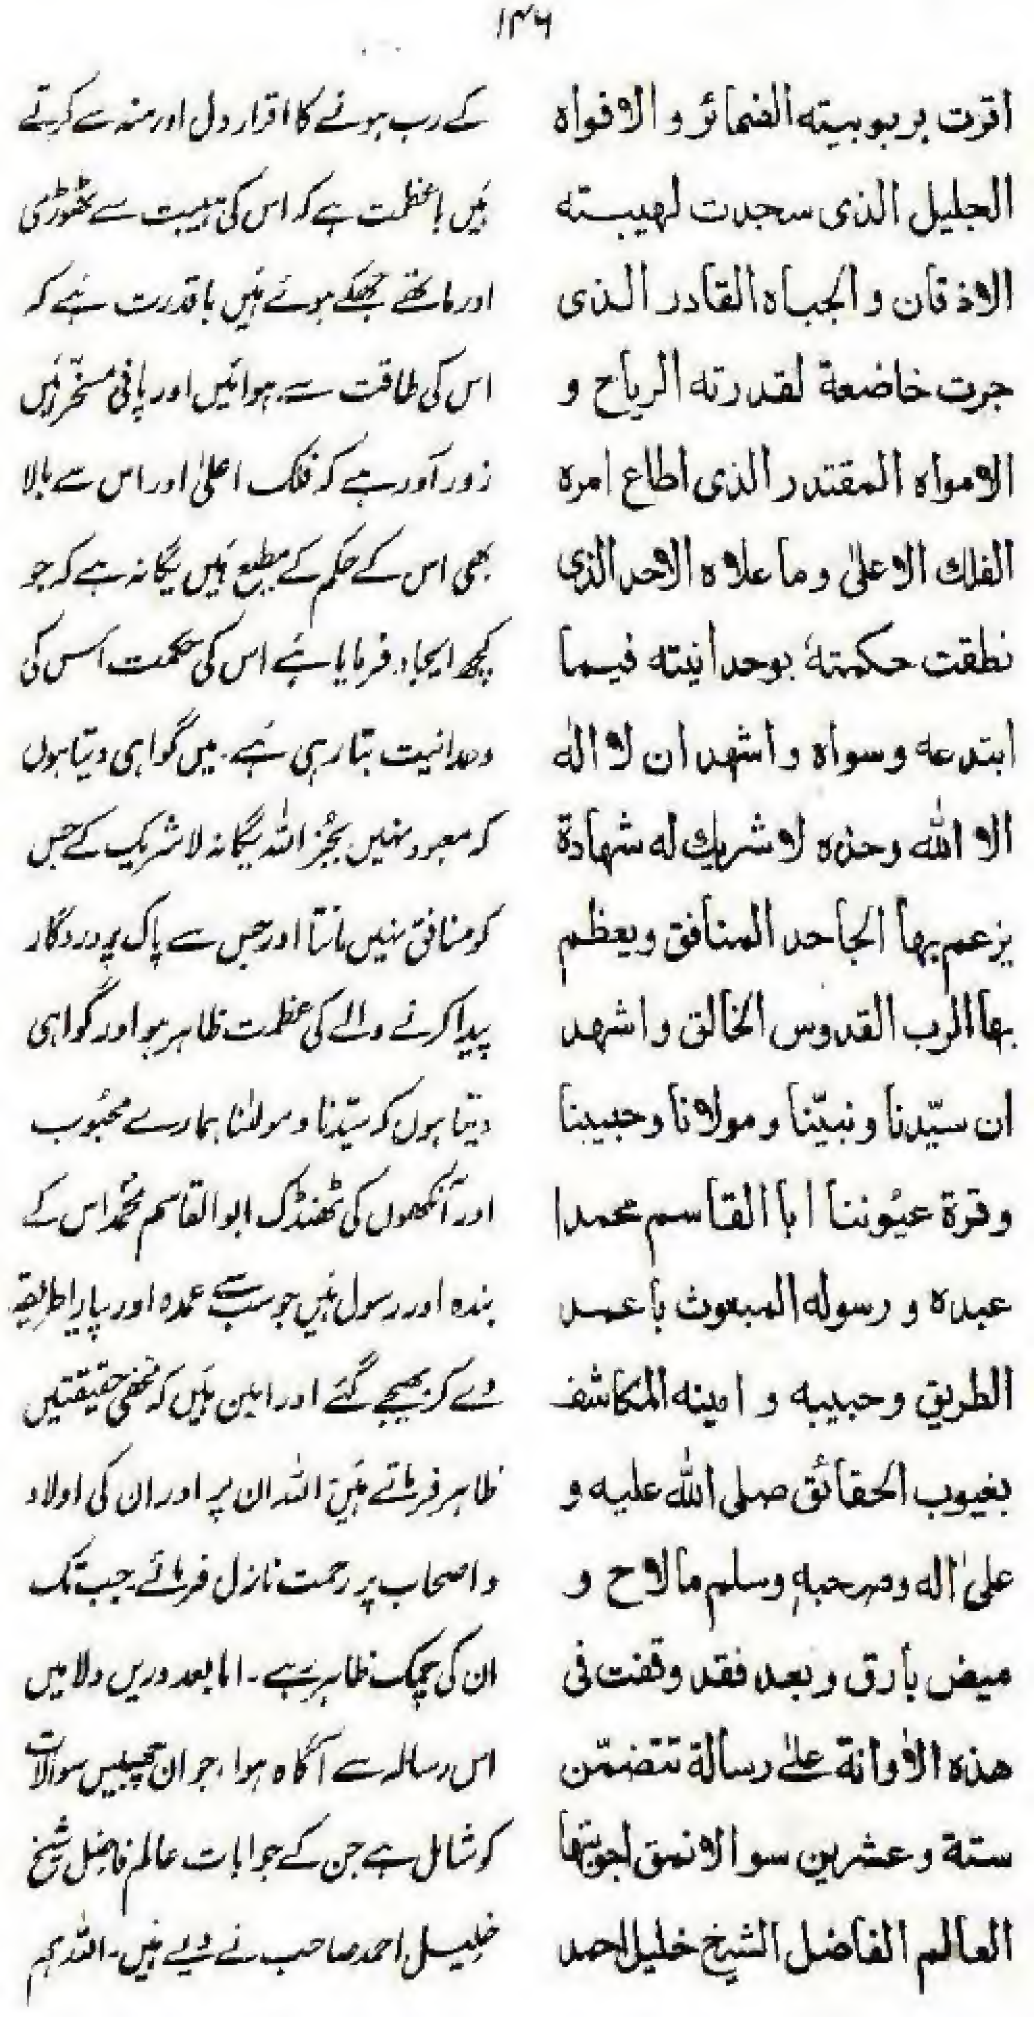 ۱۴۶
اقرت بربوبيته الضمائر و الافواه
الجليل الذى سجدت لهيبته
الاذقان و الجباه القادر الذى
جرت خاضعة لقدرته الرياح و
الامواه المقتدر الذى اطاع امره
الفلك الاعلىٰ وما علاه الاحد الذى
نطقت حكمتهٗ بوحدانيته فيما
ابتدعه وسواه و اشهد ان لا الٰه
الا الله وحده لا شريك له شهادة
يزعم بها الجاحد المنافق ويعظم
بها الرب القدوس الخالق و اشهد
ان سيّدنا و نبيّنا و مولانا و حبيبنا
و قرة عيوننا ابا القاسم محمدا
عبده و رسوله المبعوث باعمد
الطريق وحبيبه و امينه المكاشف
بغيوب الحقائق صلى الله عليه و
علىٰ اله وصحبهٖ وسلم مالاح و
ميض بارق و بعد فقد وقفت فى
هذه الاٰوانة علىٰ رسالة تتضمّن
ستة و عشرين سوالا نمق اجوبتها
العالم الفاضل الشيخ خليل احمد
کے رب ہونے کا اقرار دل اور منہ سے کرتے
ہَیں باعظمت ہے کہ اس کی ہیبت سے ٹھوڑی
اور ماتھے جھکے ہوئے ہَیں باقدرت ہَے کہ
اس کی طاقت سے ہوائیں اور پانی مسخّر ہَیں
زور آور ہے کہ فلک اعلیٰ اور اس سے بالا
بھی اس کے حکم کے مطیع ہَیں یگانہ ہے کہ جو
کچھ ایجاد فرمایا ہَے اس کی حکمت اس کی
وحدانیت بتا رہی ہَے۔ میں گواہی دیتا ہوں
کہ معبود نہیں بجُز اللہ یگانہ لاشریک کے جس
کو منافق نہیں مانتا اور جس سے پاک پروردگار
پیدا کرنے والے کی عظمت ظاہر ہو اور گواہی
دیتا ہوں کہ سیّدنا و مولٰنا ہمارے محبُوب
اور آنکھوں کی ٹھنڈک ابوالقاسم محمّد اس کے
بندہ اور رسول ہَیں جو سب سے عمدہ اور پیارا طریقہ
دے کر بھیجے گئے اور امین ہَیں کہ مخفی حقیقتیں
ظاہر فرماتے ہَیں اللہ ان پر اور ان کی اولاد
و اصحاب پر رحمت نازل فرمائے۔ جب تک
ان کی چمک ظاہر رہے۔ اما بعد دریں ولا میں
اس رسالہ سے آگاہ ہوا، جو ان چھبیس سوالات
کو شامل ہے جن کے جوابات عالم فاضل شیخ
خلیل احمد صاحب نے دیے ہَیں۔ اللہ ہم